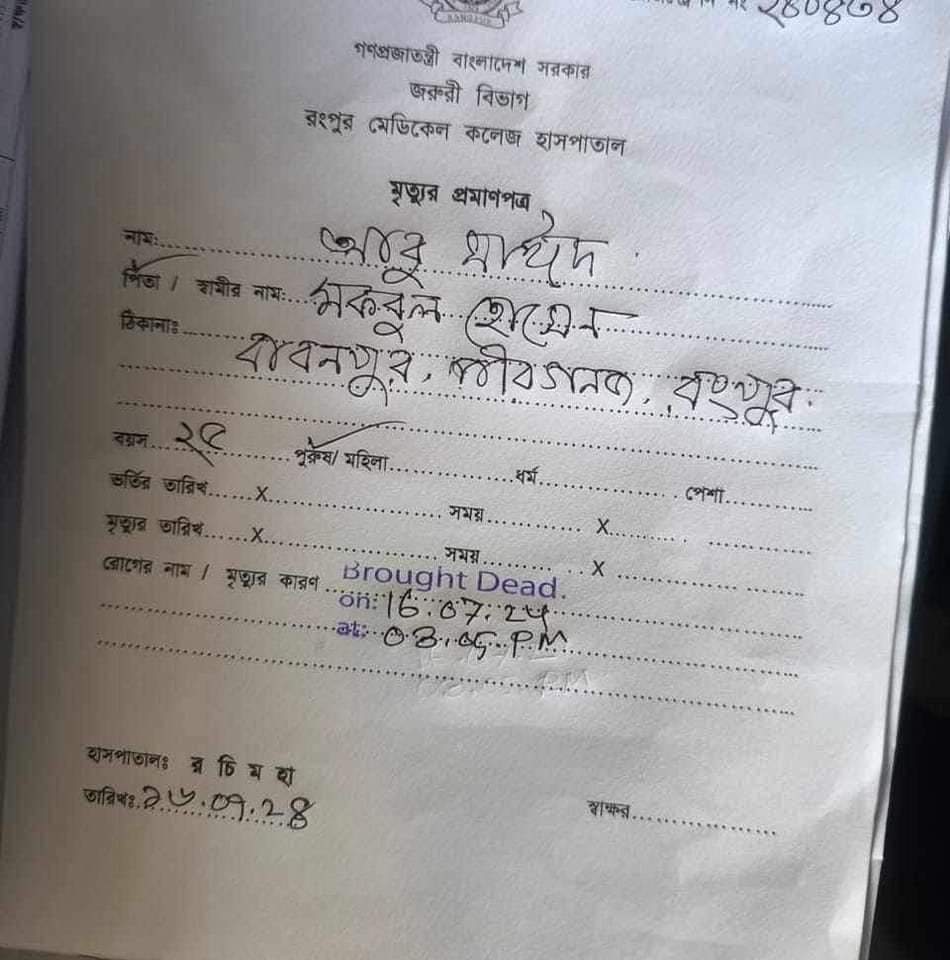 RANGPUR
নং ২৪০৪৩৪
গণপ্রজাতন্ত্রী বাংলাদেশ সরকার
জরুরী বিভাগ
রংপুর মেডিকেল কলেজ হাসপাতাল
মৃত্যুর প্রমাণপত্র
নাম:..... আবু সাঈদ
পিতা / স্বামীর নাম:... মকবুল হোসেন
ঠিকানাঃ..... বাবনপুর, পীরগনজ, রংপুর
বয়স... ২৫ ..... পুরুষ/ মহিলা..... ধর্ম..... পেশা.....
ভর্তির তারিখ.....X..... সময়.....X.....
মৃত্যুর তারিখ.....X..... সময়.....X.....
রোগের নাম / মৃত্যুর কারণ ... Brought Dead.
on: 16.07.24
at: 03.05 PM
হাসপাতালঃ র চি ম হা
তারিখঃ ১৬.০৭.২৪ স্বাক্ষর.....